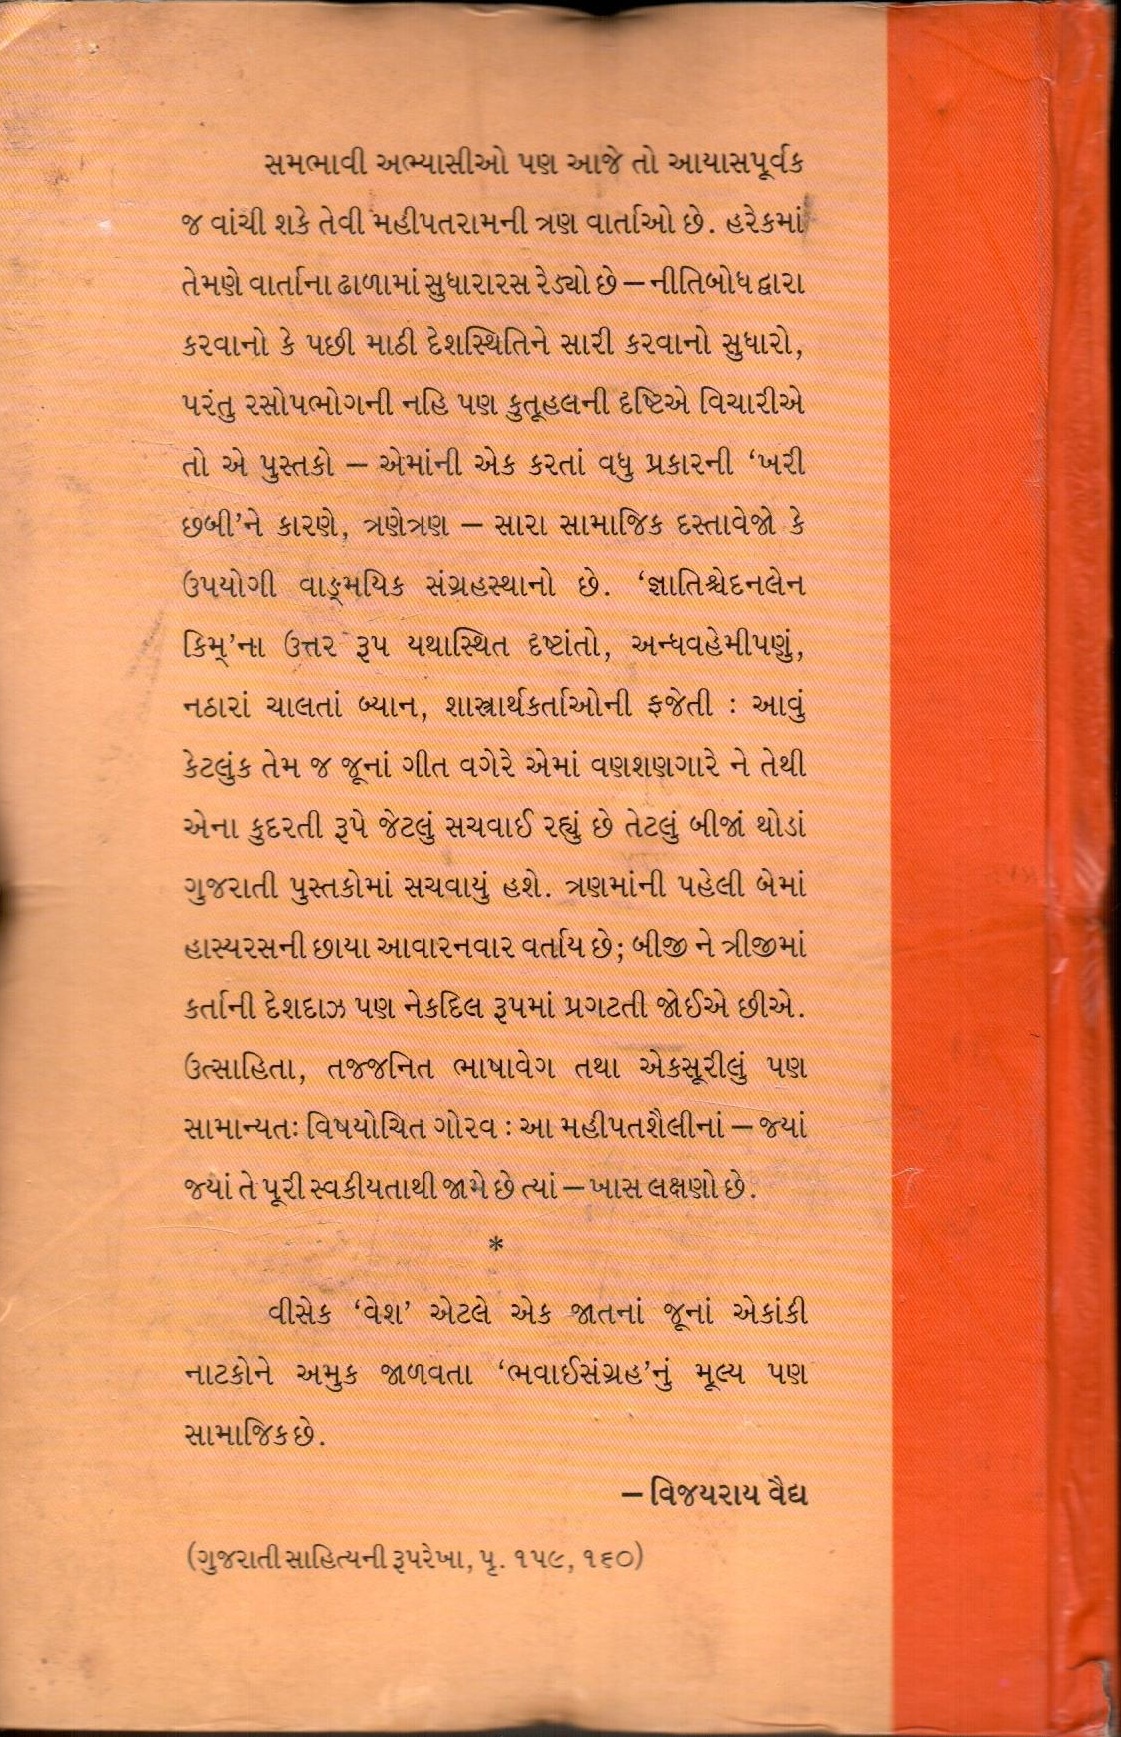 સમભાવી અભ્યાસીઓ પણ આજે તો આયાસપૂર્વક
જ વાંચી શકે તેવી મહીપતરામની ત્રણ વાર્તાઓ છે. હરેકમાં
તેમણે વાર્તાના ઢાળામાં સુધારારસ રેડ્યો છે – નીતિબોધ દ્વારા
કરવાનો કે પછી માઠી દેશસ્થિતિને સારી કરવાનો સુધારો,
પરંતુ રસોપભોગની નહિ પણ કુતૂહલની દૃષ્ટિએ વિચારીએ
તો એ પુસ્તકો – એમાંની એક કરતાં વધુ પ્રકારની ‘ખરી
છબી’ને કારણે, ત્રણેત્રણ – સારા સામાજિક દસ્તાવેજો કે
ઉપયોગી વાઙ્મયિક સંગ્રહસ્થાનો છે. ‘જ્ઞાતિશ્ચેદનલેન
કિમ્’ના ઉત્તર રૂપ યથાસ્થિત દૃષ્ટાંતો, અન્ધવહેમીપણું,
નઠારાં ચાલતાં બ્યાન, શાસ્ત્રાર્થકર્તાઓની ફજેતી : આવું
કેટલુંક તેમ જ જૂનાં ગીત વગેરે એમાં વણશણગારે ને તેથી
એના કુદરતી રૂપે જેટલું સચવાઈ રહ્યું છે તેટલું બીજાં થોડાં
ગુજરાતી પુસ્તકોમાં સચવાયું હશે. ત્રણમાંની પહેલી બેમાં
હાસ્યરસની છાયા આવારનવાર વર્તાય છે; બીજી ને ત્રીજીમાં
કર્તાની દેશદાઝ પણ નેકદિલ રૂપમાં પ્રગટતી જોઈએ છીએ.
ઉત્સાહિતા, તજ્જનિત ભાષાવેગ તથા એકસૂરીલું પણ
સામાન્યતઃ વિષયોચિત ગોરવ : આ મહીપતશૈલીનાં – જ્યાં
જ્યાં તે પૂરી સ્વકીયતાથી જામે છે ત્યાં – ખાસ લક્ષણો છે.
*
વીસેક ‘વેશ’ એટલે એક જાતનાં જૂનાં એકાંકી
નાટકોને અમુક જાળવતા ‘ભવાઈસંગ્રહ’નું મૂલ્ય પણ
સામાજિક છે.
– વિજયરાય વૈદ્ય
(ગુજરાતી સાહિત્યની રૂપરેખા, પૃ. ૧૫૯, ૧૬૦)